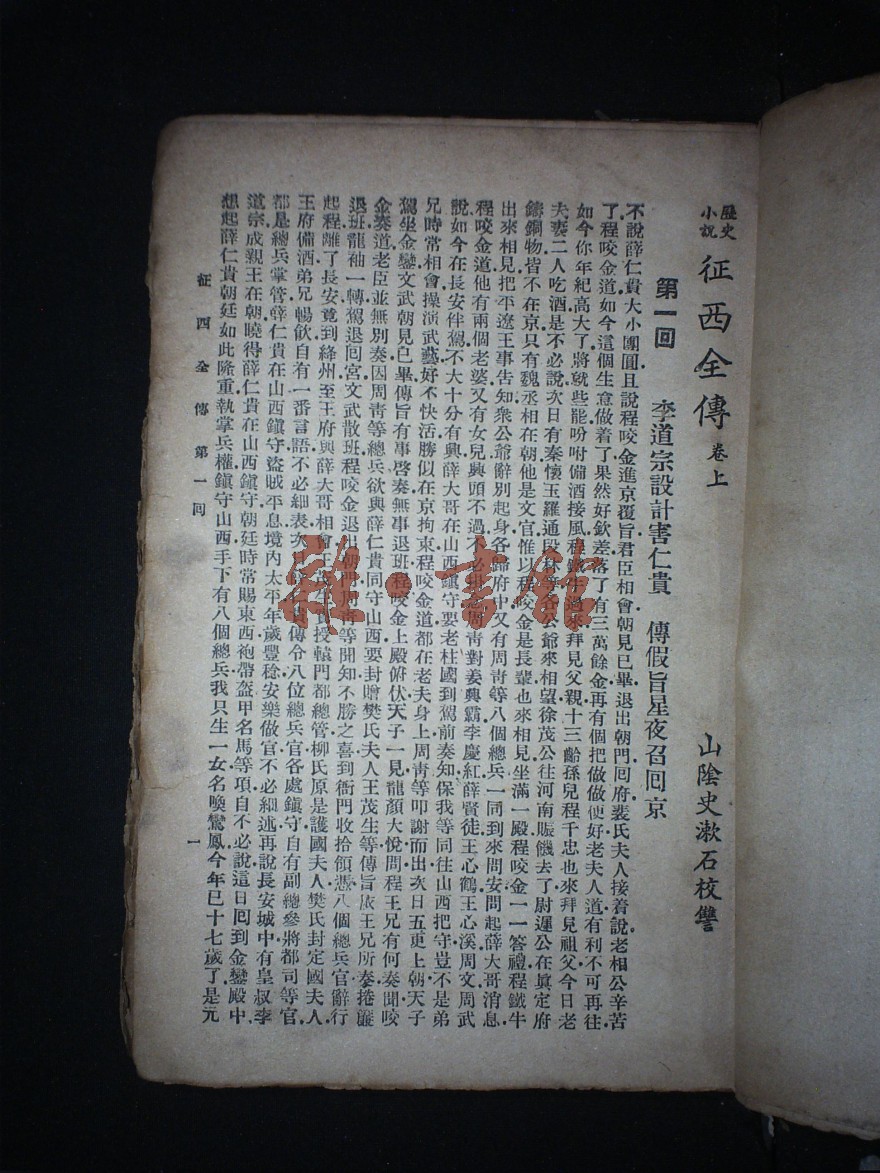 歷史小說 征西全傳 卷上 山陰史漱石校讐
第一回 李道宗設計害仁貴 傳假旨星夜召囘京
不說薛仁貴大小團圓且說程咬金進京覆旨君臣相會朝見已畢退出朝門囘府裴氏夫人接着說老相公辛苦
了程咬金道如今這個生意做着了果然好欽差落了有三萬餘金再有個把做做便好老夫人道有利不可再往
如今你年紀高大了將就些罷吩咐備酒接風程鐵牛過來拜見父親十三齡孫兒程千忠也來拜見祖父今日老
夫妻二人吃酒是不必說次日有秦懷玉羅通段林等各公爺來相望徐茂公往河南賑饑去了尉遲公在眞定府
鑄銅物皆不在京只有魏丞相在朝他是文官惟以程咬金是長輩也來相見坐滿一殿程咬金一一答禮程鐵牛
出來相見把平遼王事告知衆公爺辭別起身各歸府中又有周靑等八個總兵一同到來問安問起薛大哥消息
程咬金道他有兩個老婆又有女兒興頭不過不必掛念周靑對姜興霸李慶紅薛賢徒王心鶴王心溪周文周武
說如今在長安伴駕不大十分有興薛大哥在山西鎭守要老柱國到駕前奏知保我等同往山西把守豈不是弟
兄時常相會操演武藝好不快活勝似在京拘束程咬金道都在老夫身上周靑等叩謝而出次日五更上朝天子
駕坐金鑾文武朝見已畢傳旨有事啓奏無事退班程咬金上殿俯伏天子一見龍顏大悅問程王兄有何奏聞咬
金奏道老臣並無別奏因周靑等總兵欲與薛仁貴同守山西要封贈樊氏夫人王茂生等傳旨依王兄所奏捲簾
退班龍袖一轉駕退囘宮文武散班程咬金退出朝門周靑等聞知不勝之喜到衙門收拾領憑八個總兵官辭行
起程離了長安竟到絳州至王府與薛大哥相會王茂生實授轅門都總管柳氏原是護國夫人樊氏封定國夫人
王府備酒弟兄暢飲自有一番言語不必細表次日薛仁貴傳令八位總兵官各處鎭守自有副總參將都司等官
都是總兵掌管薛仁貴在山西鎭守盜賊平息境內太平年歲豐稔安樂做官不必細述再說長安城中有皇叔李
道宗成親王在朝曉得薛仁貴在山西鎭守朝廷時常賜東西袍帶盔甲名馬等項自不必說這日囘到金鑾殿中
想起薛仁貴朝廷如此隆重執掌兵權鎭守山西手下有八個總兵我只生一女名喚鸞鳳今年已十七歲了是元
征西全傳第一囘 一
雜·書館